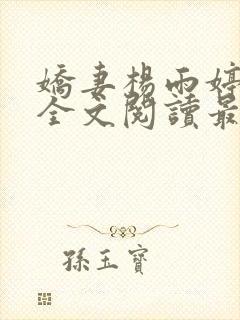 嬌妻楊雨婷
全文閱讀最
孫玉寶